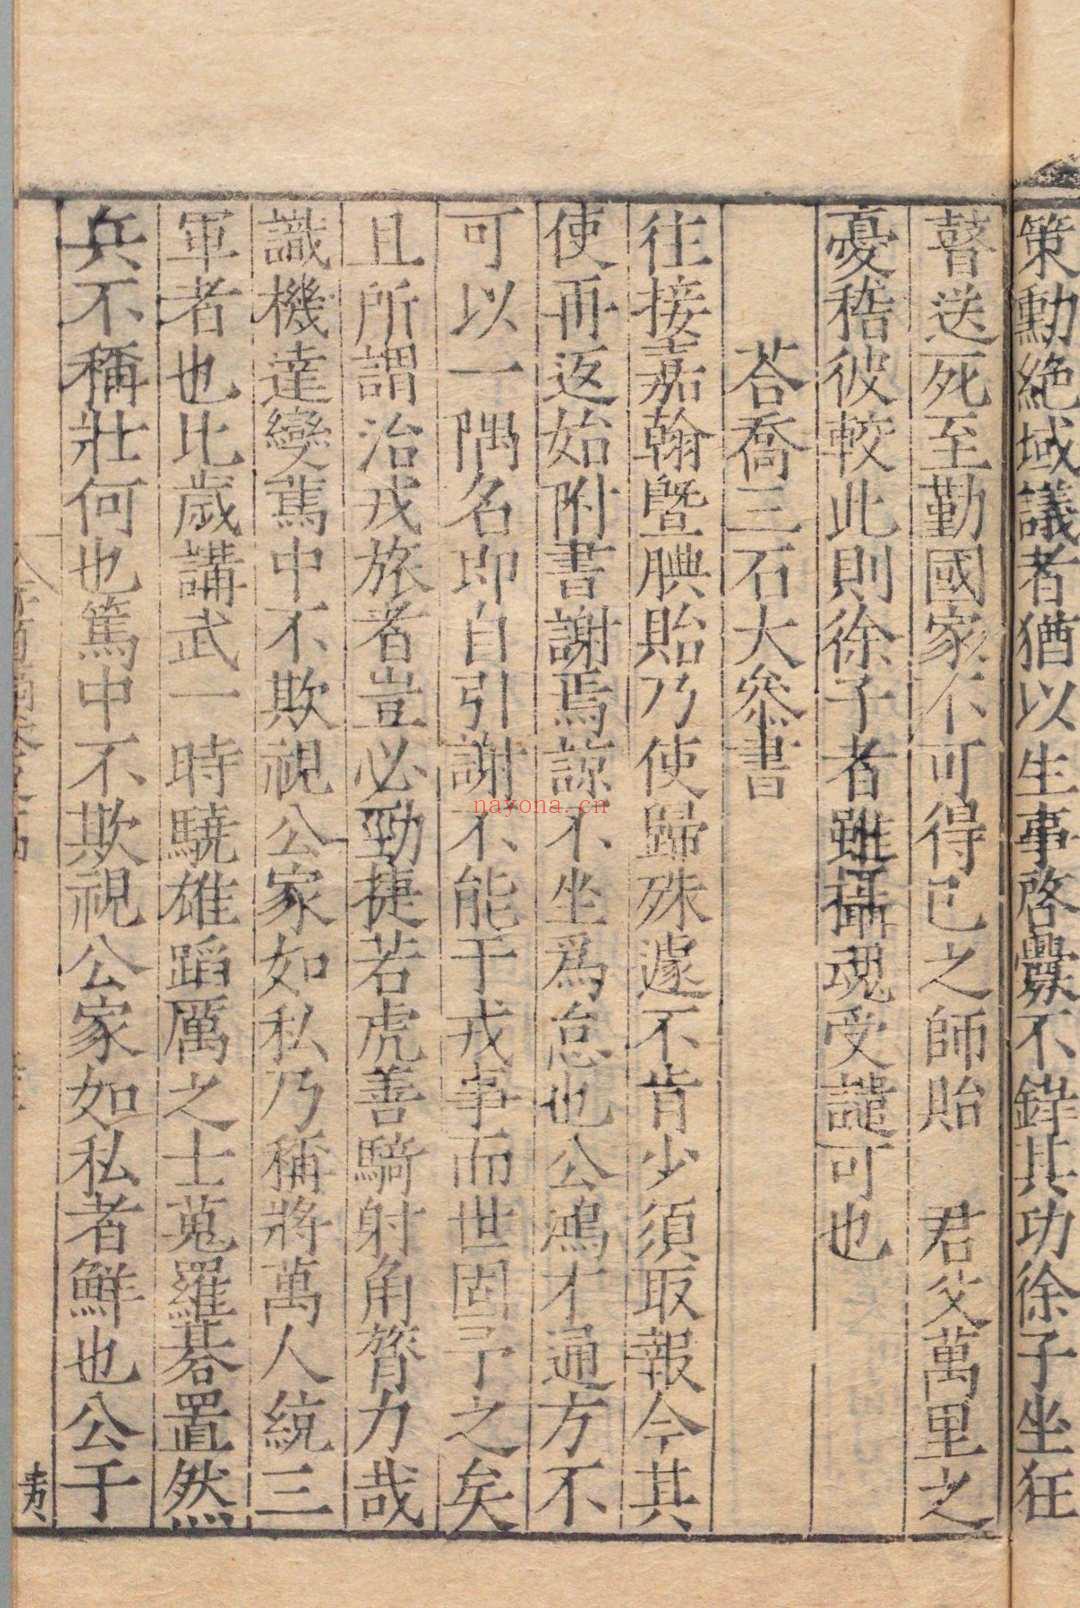 策勳絶域議者猶以生事啓釁不錄其功徐子坐狂
瞽送死至勤國家不可得已之師貽　君父萬里之
憂稽彼較此則徐子者雖攝魂受譴可也
荅喬三石大叅書
往接嘉翰曁腆貽乃使歸殊遽不肯少須取報今其
使再返始附書謝焉諒不坐爲怠也公鴻才通方不
可以一隅名即自引謝不能于戎事而世固予之矣
且所謂治戎旅者豈必勁捷若虎善騎射角膂力哉
識機達變篤中不欺視公家如私乃稱將萬人統三
軍者也比歲講武一時驍雄蹈厲之士蒐羅棊置然
兵不稱壯何也篤中不欺視公家如私者鮮也公于
nayona.cn